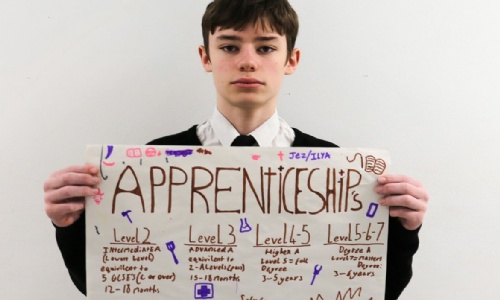 Jez/ILYA
APPRENTICESHIP's
Level 2
Intermediate A
(Lower Level)
equivilent to
5 GCSES (C or over)
12-18 months
Level 3
Advanced A
equivilent to
2-A Levels
15-18 months
Level 4-5
Higher A
Level 5 = full
Degree
3-5 years
Level 5-6-7
Degree A
Level 7 = masters
Degree
3-6 years